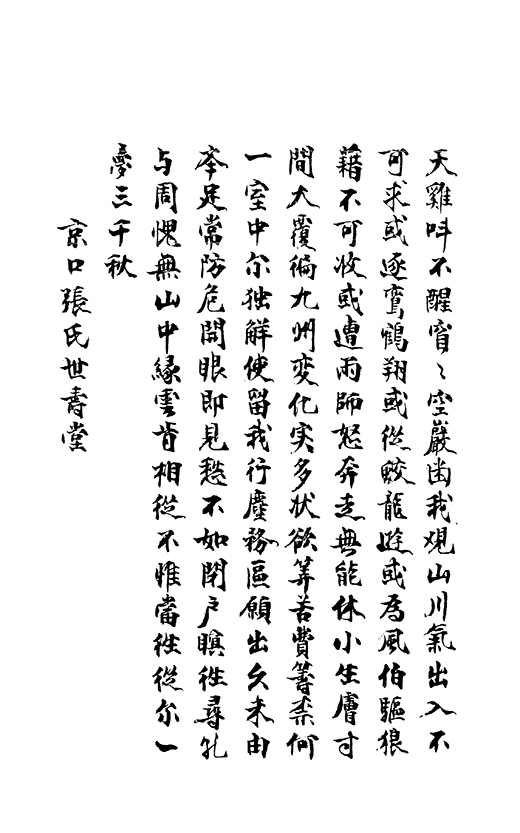 天雞叫不醒窅〻空巖幽我觀山川氣出入不
可求或逐鸞鶴翔或從蛟龍遊或為風伯驅狼
藉不可收或遭雨師怒奔走無能休小生膚寸
間大覆徧九州変化实多状欲筭苦費籌柰何
一室中尔独解使留我行塵務區願出久未由
舉足常防危開眼即見愁不如閉戶瞑往尋孔
与周愧無山中緣雲肯相從不惟當往從尔一
夢三千秋
京口張氏世壽堂